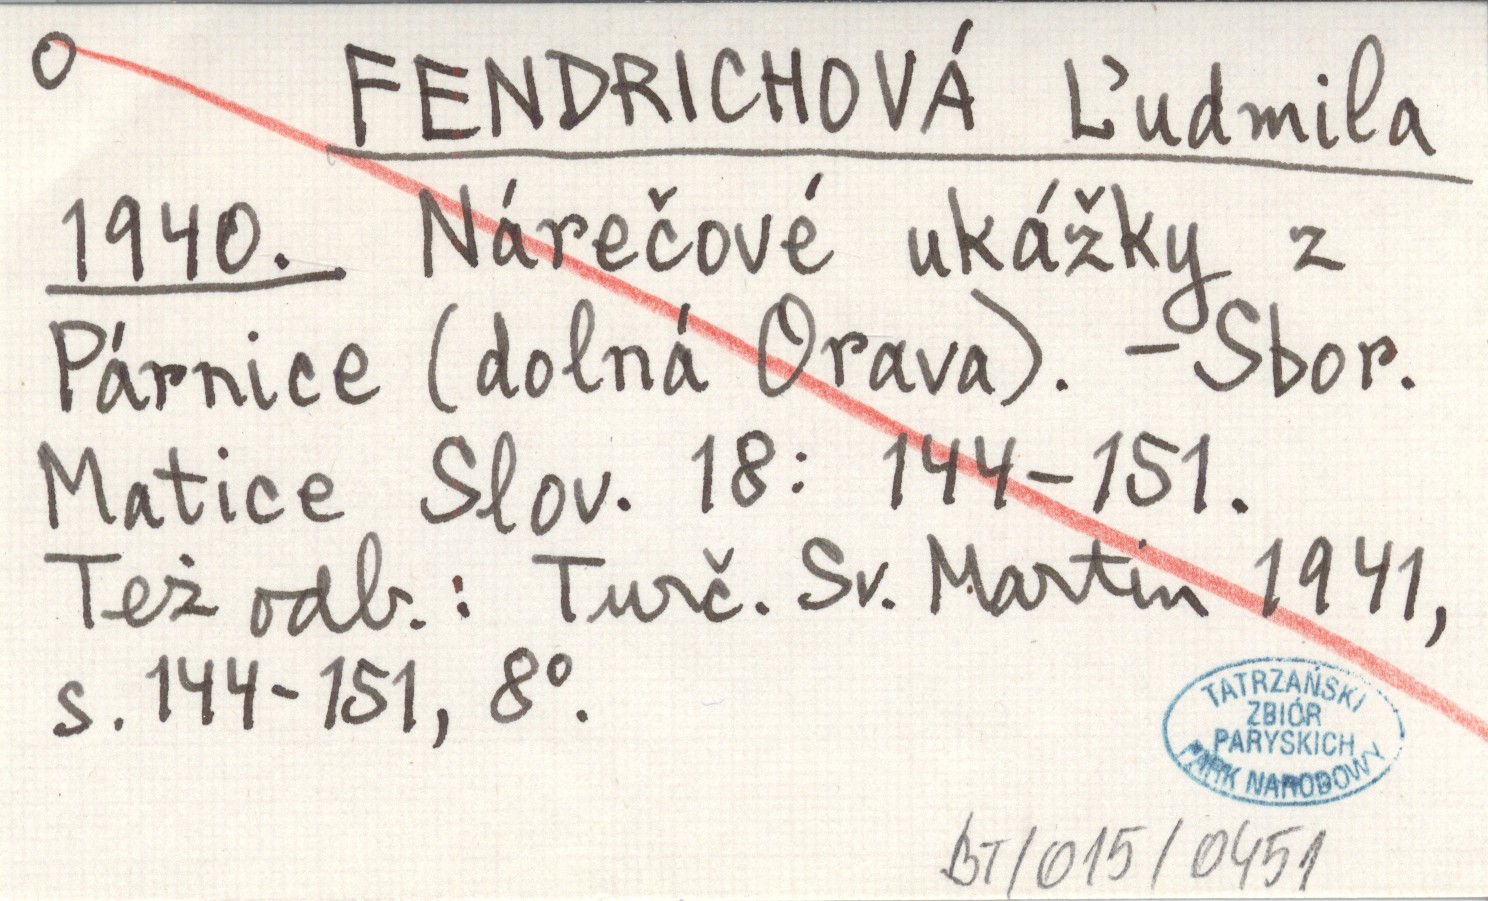 O FENDRICHOVÁ Ľudmila
1940. Nárečové ukážky z
Párnice (dolná Orava). - Sbor.
Matice Slov. 18: 144-151.
Też odb.: Turč. Sv. Martin 1941,
s. 144-151, 8°.
TATRZAŃSKI
ZBIÓR
PARYSKICH
PARK NARODOWY
BT/015/0451